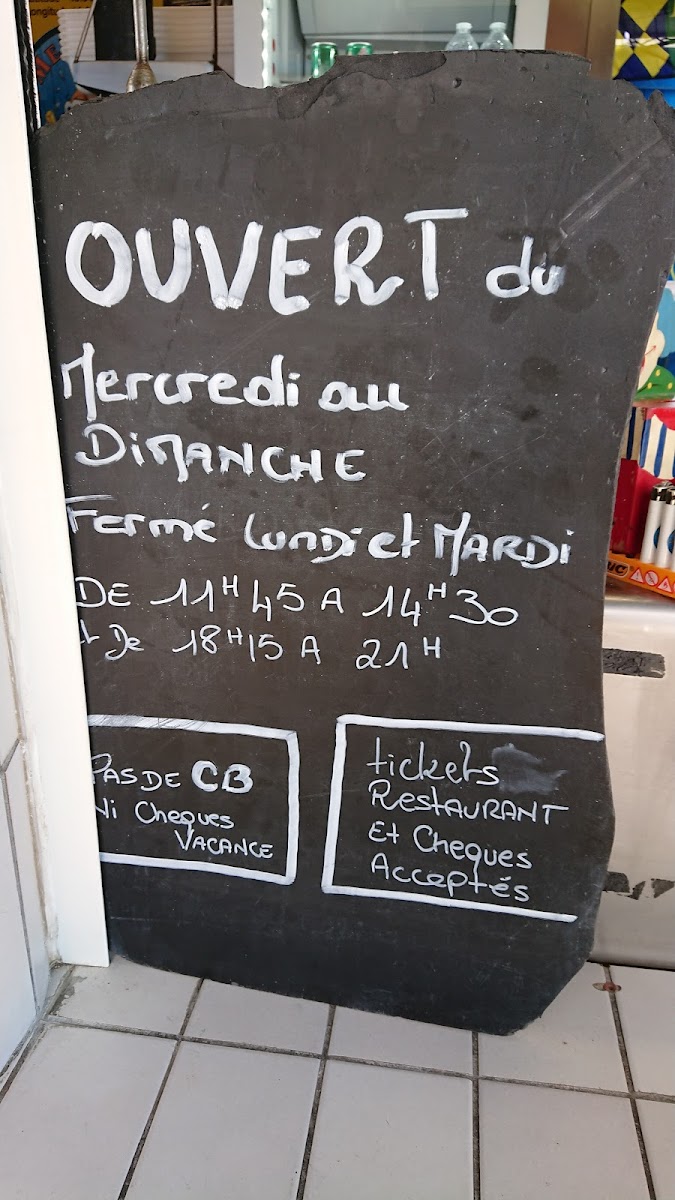 OUVERT du
Mercredi au
DIMANCHE
Fermé Lundi et MARDI
DE 11H45 A 14H30
De 18H15 A 21H
PAS DE CB
Ni Cheques
VACANCE
tickets
RESTAURANT
Et Cheques
Acceptés